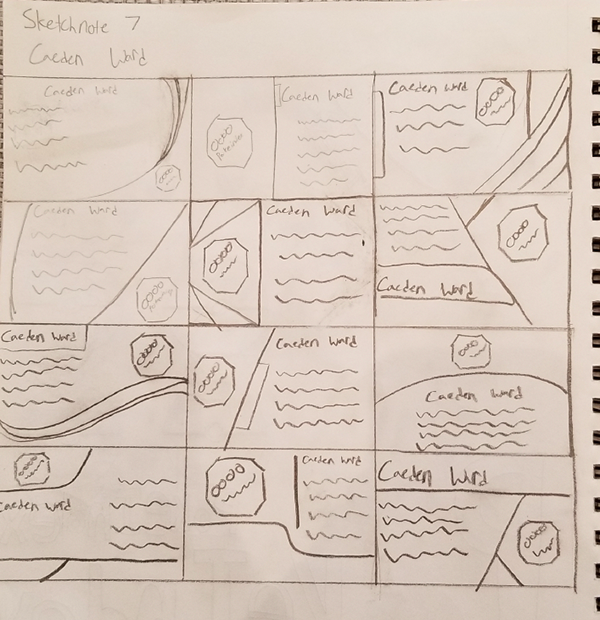 Sketchnote 7
Caeden Ward
Caeden Ward
Caeden Ward
Caeden Ward
Caeden Ward
Caeden Ward
Caeden Ward
Caeden Ward
Caeden Ward
Caeden Ward
Caeden Ward
Caeden Ward
Caeden Ward